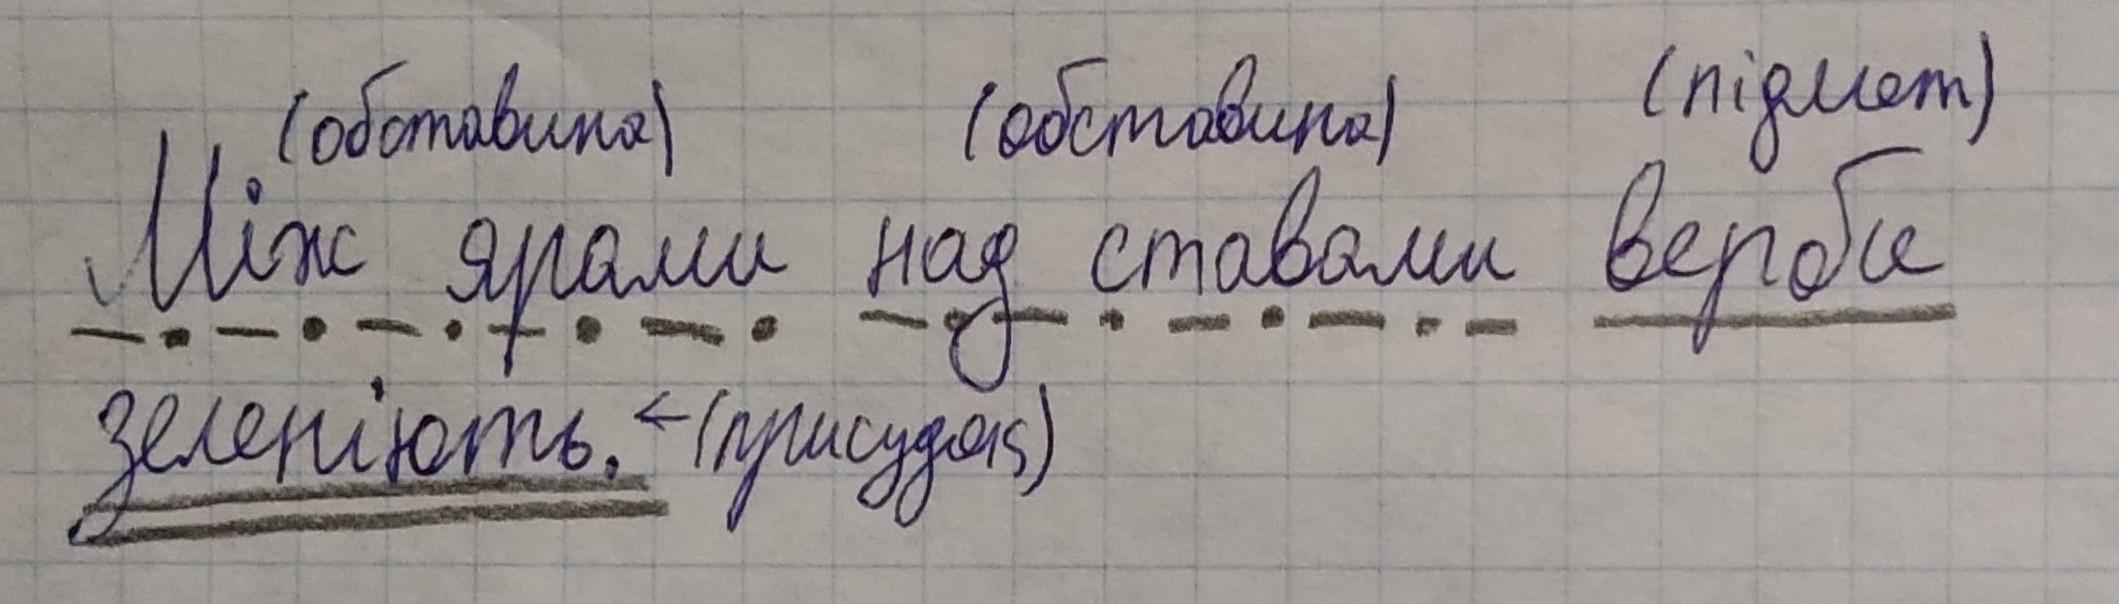 (обставина) (обставина) (підмет)
Між ярами над ставами верби
зеленіють. ←(присудок)